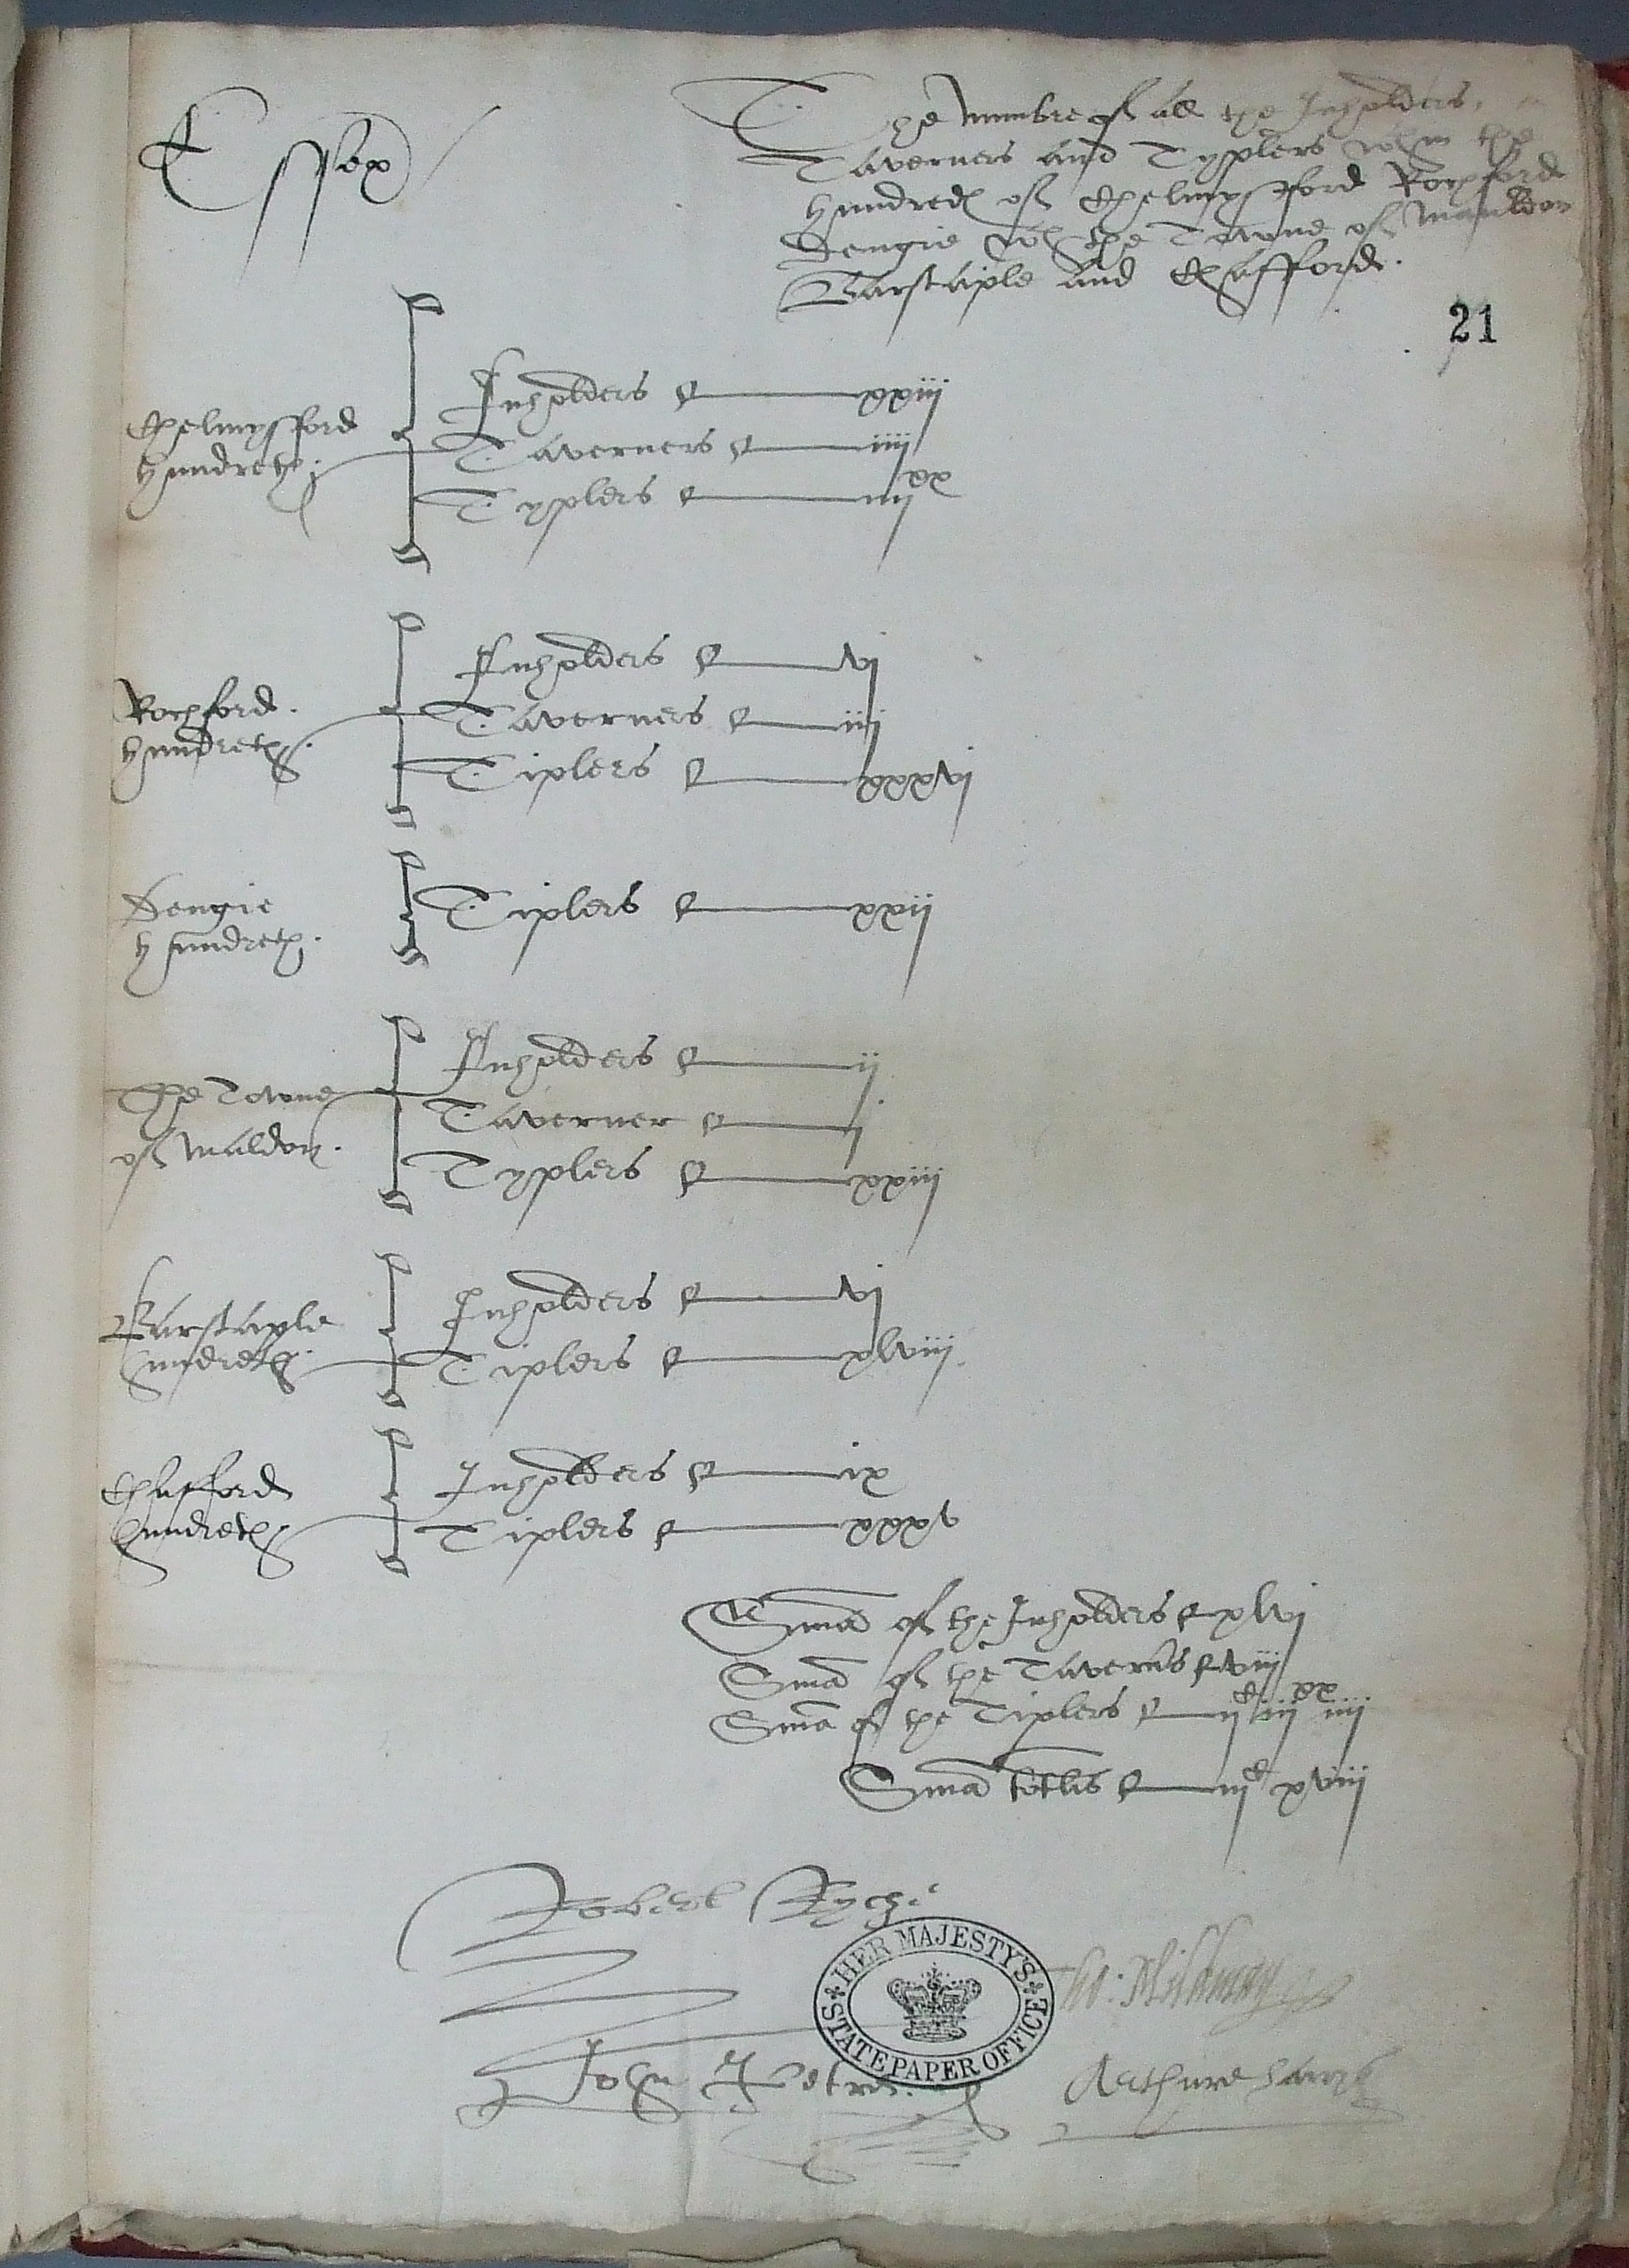 Essex
The Numbre of all the Inholders,
Taverners and Typlers wthin the
hundred of Chelmysford Rochford
Dengie wth the Towne of Mauldon
Barstaple and Chafford.
21
Chelmysford
hundreth.
Inholders xxiij
Taverners iiij
Typlers iiij xx
Rochford.
hundreth.
Inholders vj
Taverners iij
Tiplers xxxvj
Dengie
hundreth.
Tiplers xxij
The Towne
of Maldon.
Inholders ij
Taverner j
Typlers xxiij
Barstaple
hundreth.
Inholders vj
Tiplers xlviij
Chafford
hundreth.
Inholders ix
Tiplers xxxv
Suma of the Inholders xlvj
Suma of the Taverns viij
Suma of the Tiplers ij c iij xx iiij
Suma totlis iij c xviij
Robert Ryche
HER MAJESTY'S STATE PAPER OFFICE
Tho: Mildmay
John Petre.
Arthure